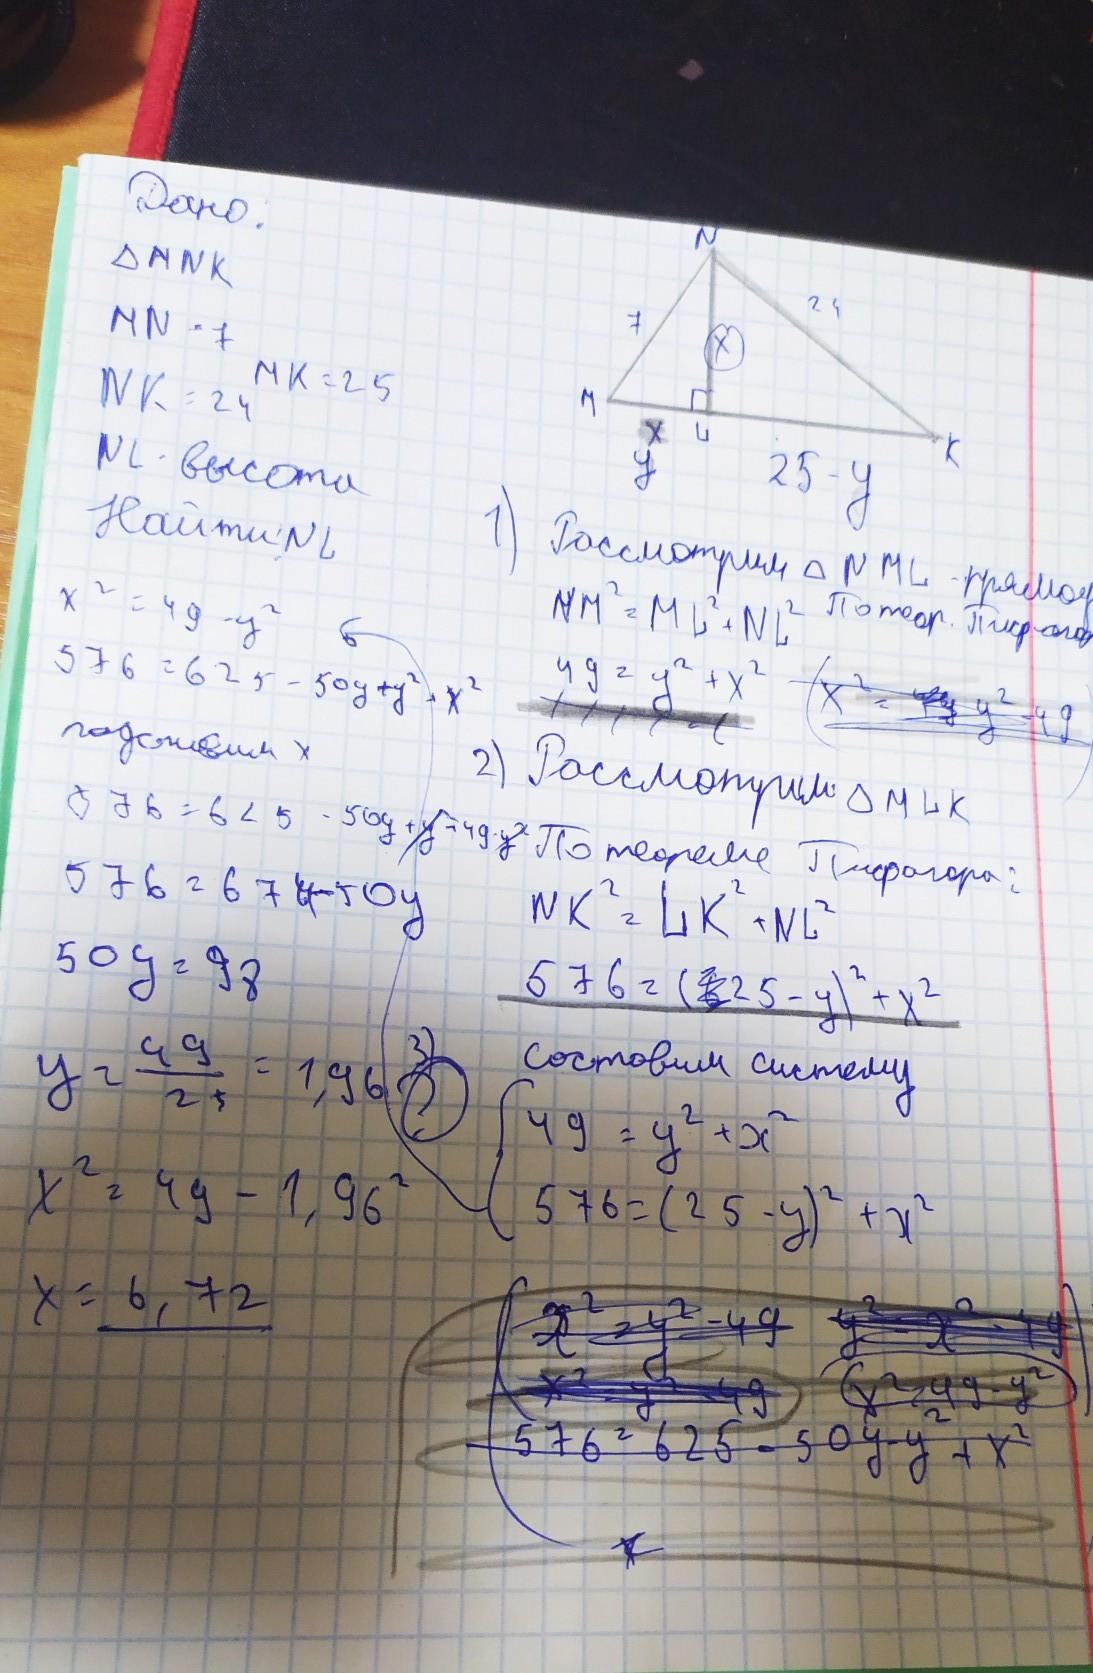 Дано:
△MNK
MN = 7
NK = 24 MK = 25
NL - высота
Найти: NL
N
7
24
x
M
x
L
K
y
25 - y
1) Рассмотрим △NML - прямоу
NM² = ML² + NL² По теор. Пифагора
49 = y² + x² (x² = y² - 49
2) Рассмотрим △MLK
По теореме Пифагора:
NK² = LK² + NL²
576 = (25 - y)² + x²
3) составим систему
49 = y² + x²
576 = (25 - y)² + x²
x² = y² - 49 y² = x² - 49
x² = y² - 49 x² = 49 - y²
576 = 625 - 50y - y² + x²
x
x² = 49 - y² 6
576 = 625 - 50y + y² + x²
подставим x
576 = 625 - 50y + y² + 49 - y²
576 = 674 - 50y
50y = 98
y = 49/25 = 1,96
x² = 49 - 1,96²
x = 6,72